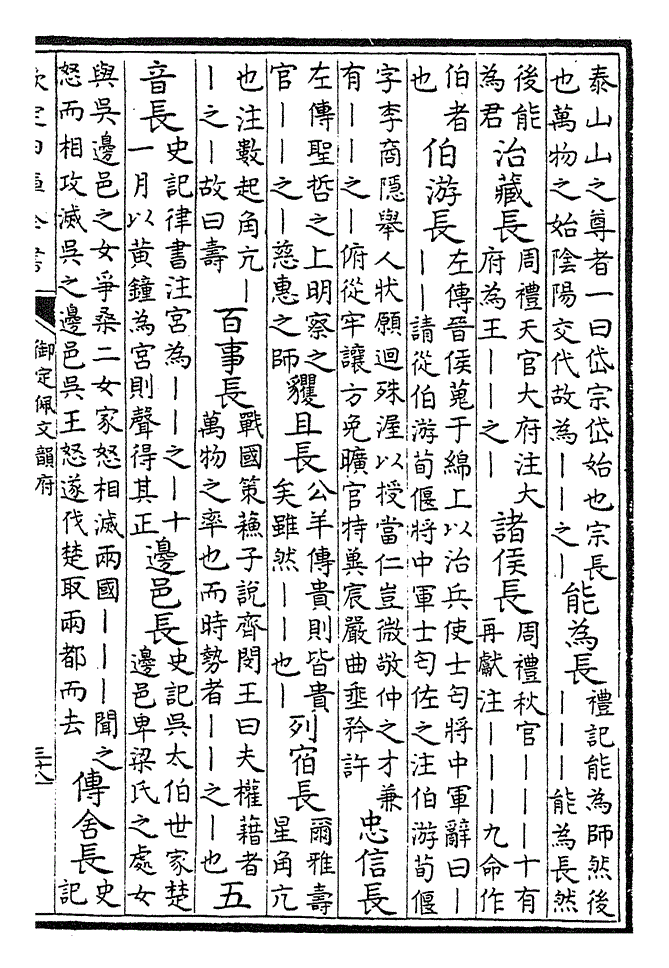 泰山山之尊者一曰岱宗岱始也宗長
也萬物之始陰陽交代故為丨丨之丨
能為長
禮記能為師然後
丨丨丨能為長然
後能
為君
治藏長
周禮天官大府注大
府為王丨丨之丨
諸侯長
周禮秋官丨丨丨十有
再獻注丨丨丨九命作
伯者
也
伯游長
左傳晉侯蒐于綿上以治兵使士匄將中軍辭曰丨
丨丨請從伯游荀偃將中軍士匄佐之注伯游荀偃
字李商隱舉人狀願迴殊渥以授當仁豈微敬仲之才兼
有丨丨之丨俯從牢讓方免曠官特冀宸嚴曲垂矜許
忠信長
左傳聖哲之上明察之
官丨丨之丨慈惠之師
貜且長
公羊傳貴則皆貴
矣雖然丨丨也丨
列宿長
爾雅壽
星角亢
也注數起角亢丨
丨之丨故曰壽
百事長
戰國策蘓子說齊閔王曰夫權藉者
萬物之率也而時勢者丨丨之丨也
五
音長
史記律書注宮為丨丨之丨十
一月以黃鐘為宮則聲得其正
邊邑長
史記吳太伯世家楚
邊邑卑梁氏之處女
與吳邊邑之女爭桑二女家怒相滅兩國丨丨丨聞之
怒而相攻滅吳之邊邑吳王怒遂伐楚取兩都而去
傳舍長
史
記
欽定四庫全書
御定佩文韻府
三十八